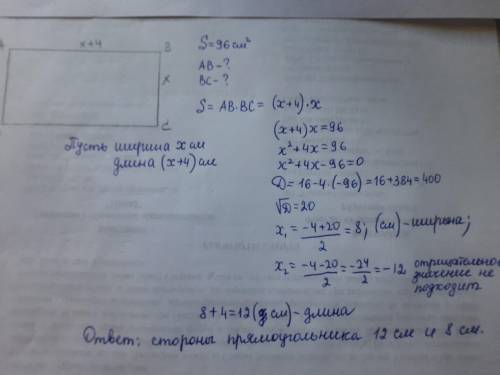 x+4
B
x
C
S=96см²
AB-?
BC-?
S = AB·BC = (x+4)·x
Пусть ширина x см
длина (x+4) см
(x+4)x=96
x²+4x=96
x²+4x-96=0
D=16-4·(-96)=16+384=400
√D=20
x₁ = (-4+20)/2 = 8; (см)-ширина;
x₂ = (-4-20)/2 = -24/2 = -12 отрицательное
значение не
подходит
8+4=12(см)-длина
Ответ: стороны прямоугольника 12 см и 8 см.